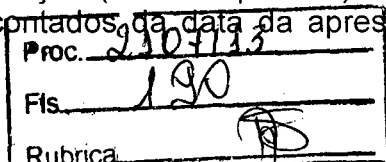 contados da data da apres
Proc. 2107/13
Fls. 190
Rubrica